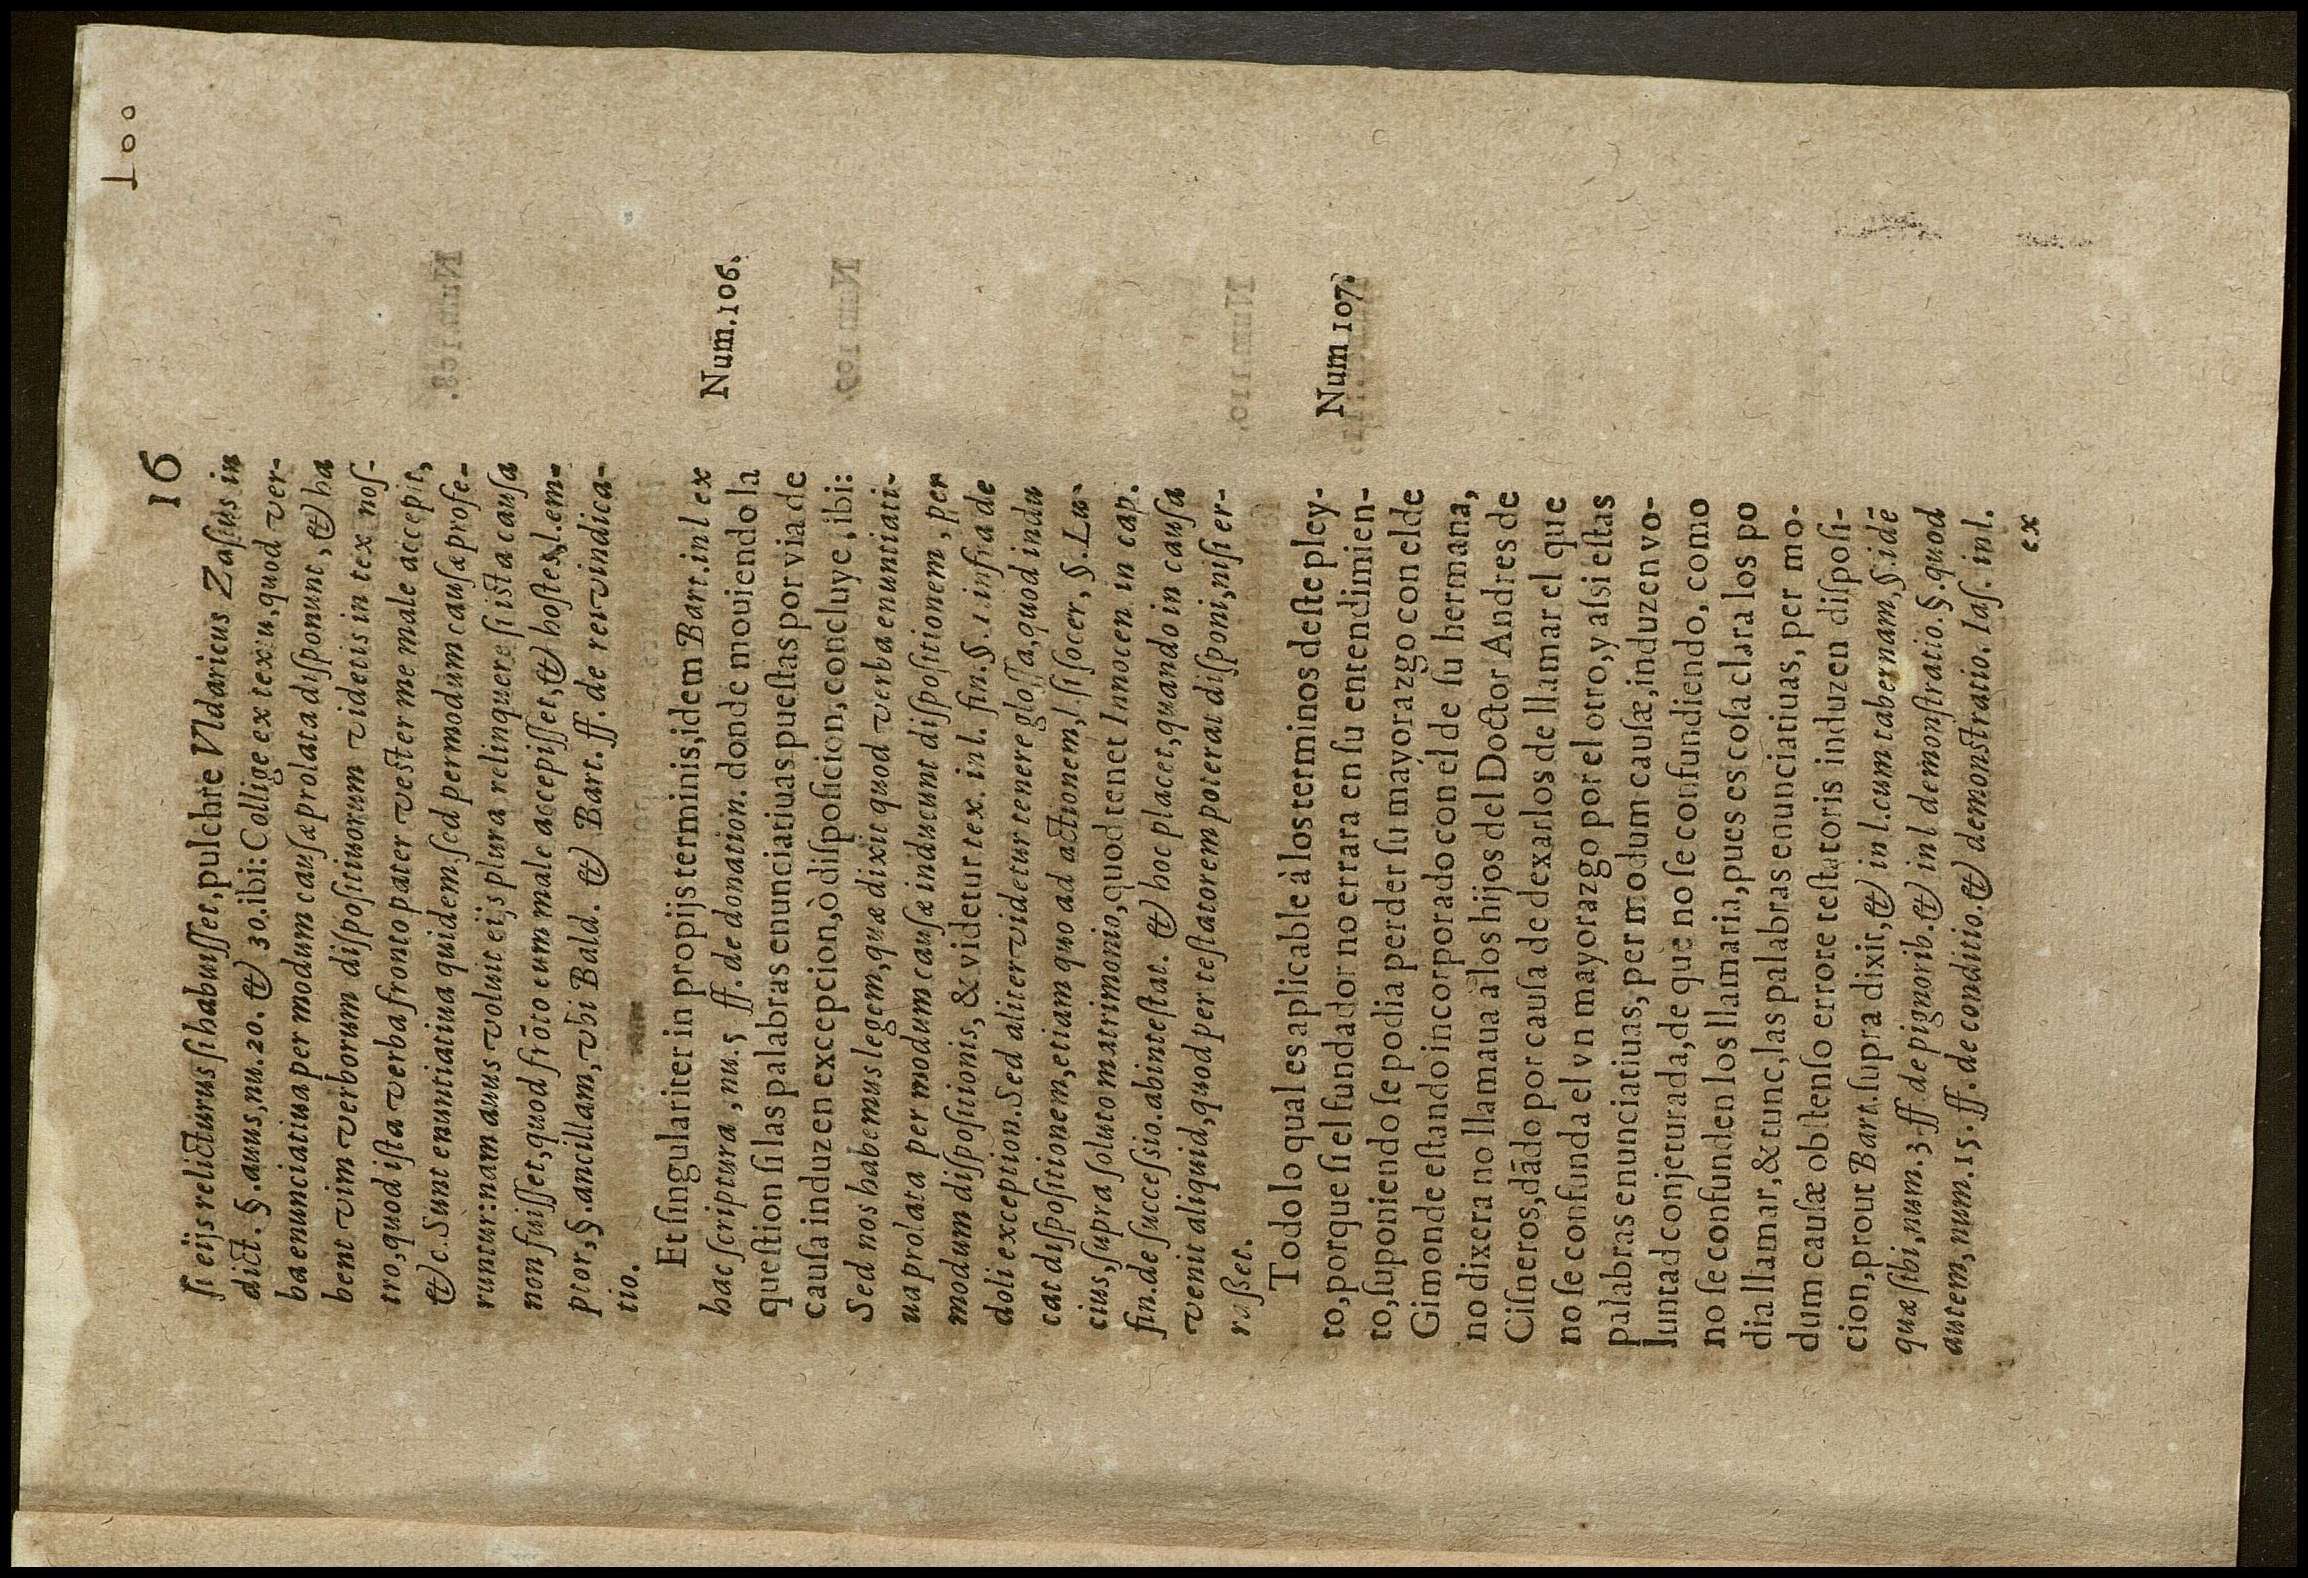 100
16
ſi eijs relicturus ſi habuiſſet, pulchre Vldaricus Zaſius in
dict. §. auus, nu. 20. & 30. ibi: Collige ex tex: u. quod ver-
ba enunciatiua per modum cauſæ prolata diſponunt, & ha
bent vim verborum diſpoſitiuorum videtis in tex noſ-
tro, quod iſta verba fronto pater veſter me male accepit,
& c. Sunt enuntiatiua quidem. ſed per modum cauſæ profe-
runtur: nam auus voluit eijs plura relinquere ſi iſta cauſa
non fuiſſet, quod frõto eum male accepiſſet, & hoſtes, l. em-
ptor, §. ancillam, vbi Bald. & Bart. ff. de rei vindica-
tio.
Et ſingulariter in propijs terminis, idem Bart. in l ex
hac ſcriptura, nu. 5 ff. de donation. donde mouiendo la
queſtion ſi las palabras enunciatiuas pueſtas por via de
cauſa induzen excepcion, ò diſpoſicion, concluye, ibi:
Sed nos habemus legem, quæ dixit quod verba enuntiati-
ua prolata per modum cauſæ inducunt diſpoſitionem, per
modum diſpoſitionis, & videtur tex. in l. fin. §. 1. infra de
doli exception. Sed aliter videtur tenere gloſſa, quod indu
cat diſpoſitionem, etiam quo ad actionem, l. ſi ſocer, §. Lu-
cius, ſupra ſoluto matrimonio, quod tenet Innocen in cap.
fin. de ſucceſsio. ab inteſtat. & hoc placet, quando in cauſa
venit aliquid, quod per teſtatorem poterat diſponi, niſi er-
raßet.
Num. 106.
Todo lo qual es aplicable à los terminos deſte pley-
to, porque ſi el fundador no errara en ſu entendimien-
to, ſuponiendo ſe podia perder ſu mayorazgo con el de
Gimonde eſtando incorporado con el de ſu hermana,
no dixera no llamaua a los hijos del Doctor Andres de
Ciſneros, dãdo por cauſa de dexarlos de llamar el que
no ſe confunda el vn mayorazgo por el otro, y aſsi eſtas
palabras enunciatiuas, per modum cauſæ, induzen vo-
luntad conjeturada, de que no ſe confundiendo, como
no ſe confunden los llamaria, pues es coſa clara los po
dia llamar, & tunc, las palabras enunciatiuas, per mo-
dum cauſæ obſtenſo errore teſtatoris induzen diſpoſi-
cion, prout Bart. ſupra dixit, & in l. cum tabernam, §. idẽ
quæ ſibi, num. 3 ff. de pignorib. & in l demonſtratio. §. quod
autem, num. 15. ff. de conditio. & demonſtratio. Iaſ. in l.
Num 107.
ex